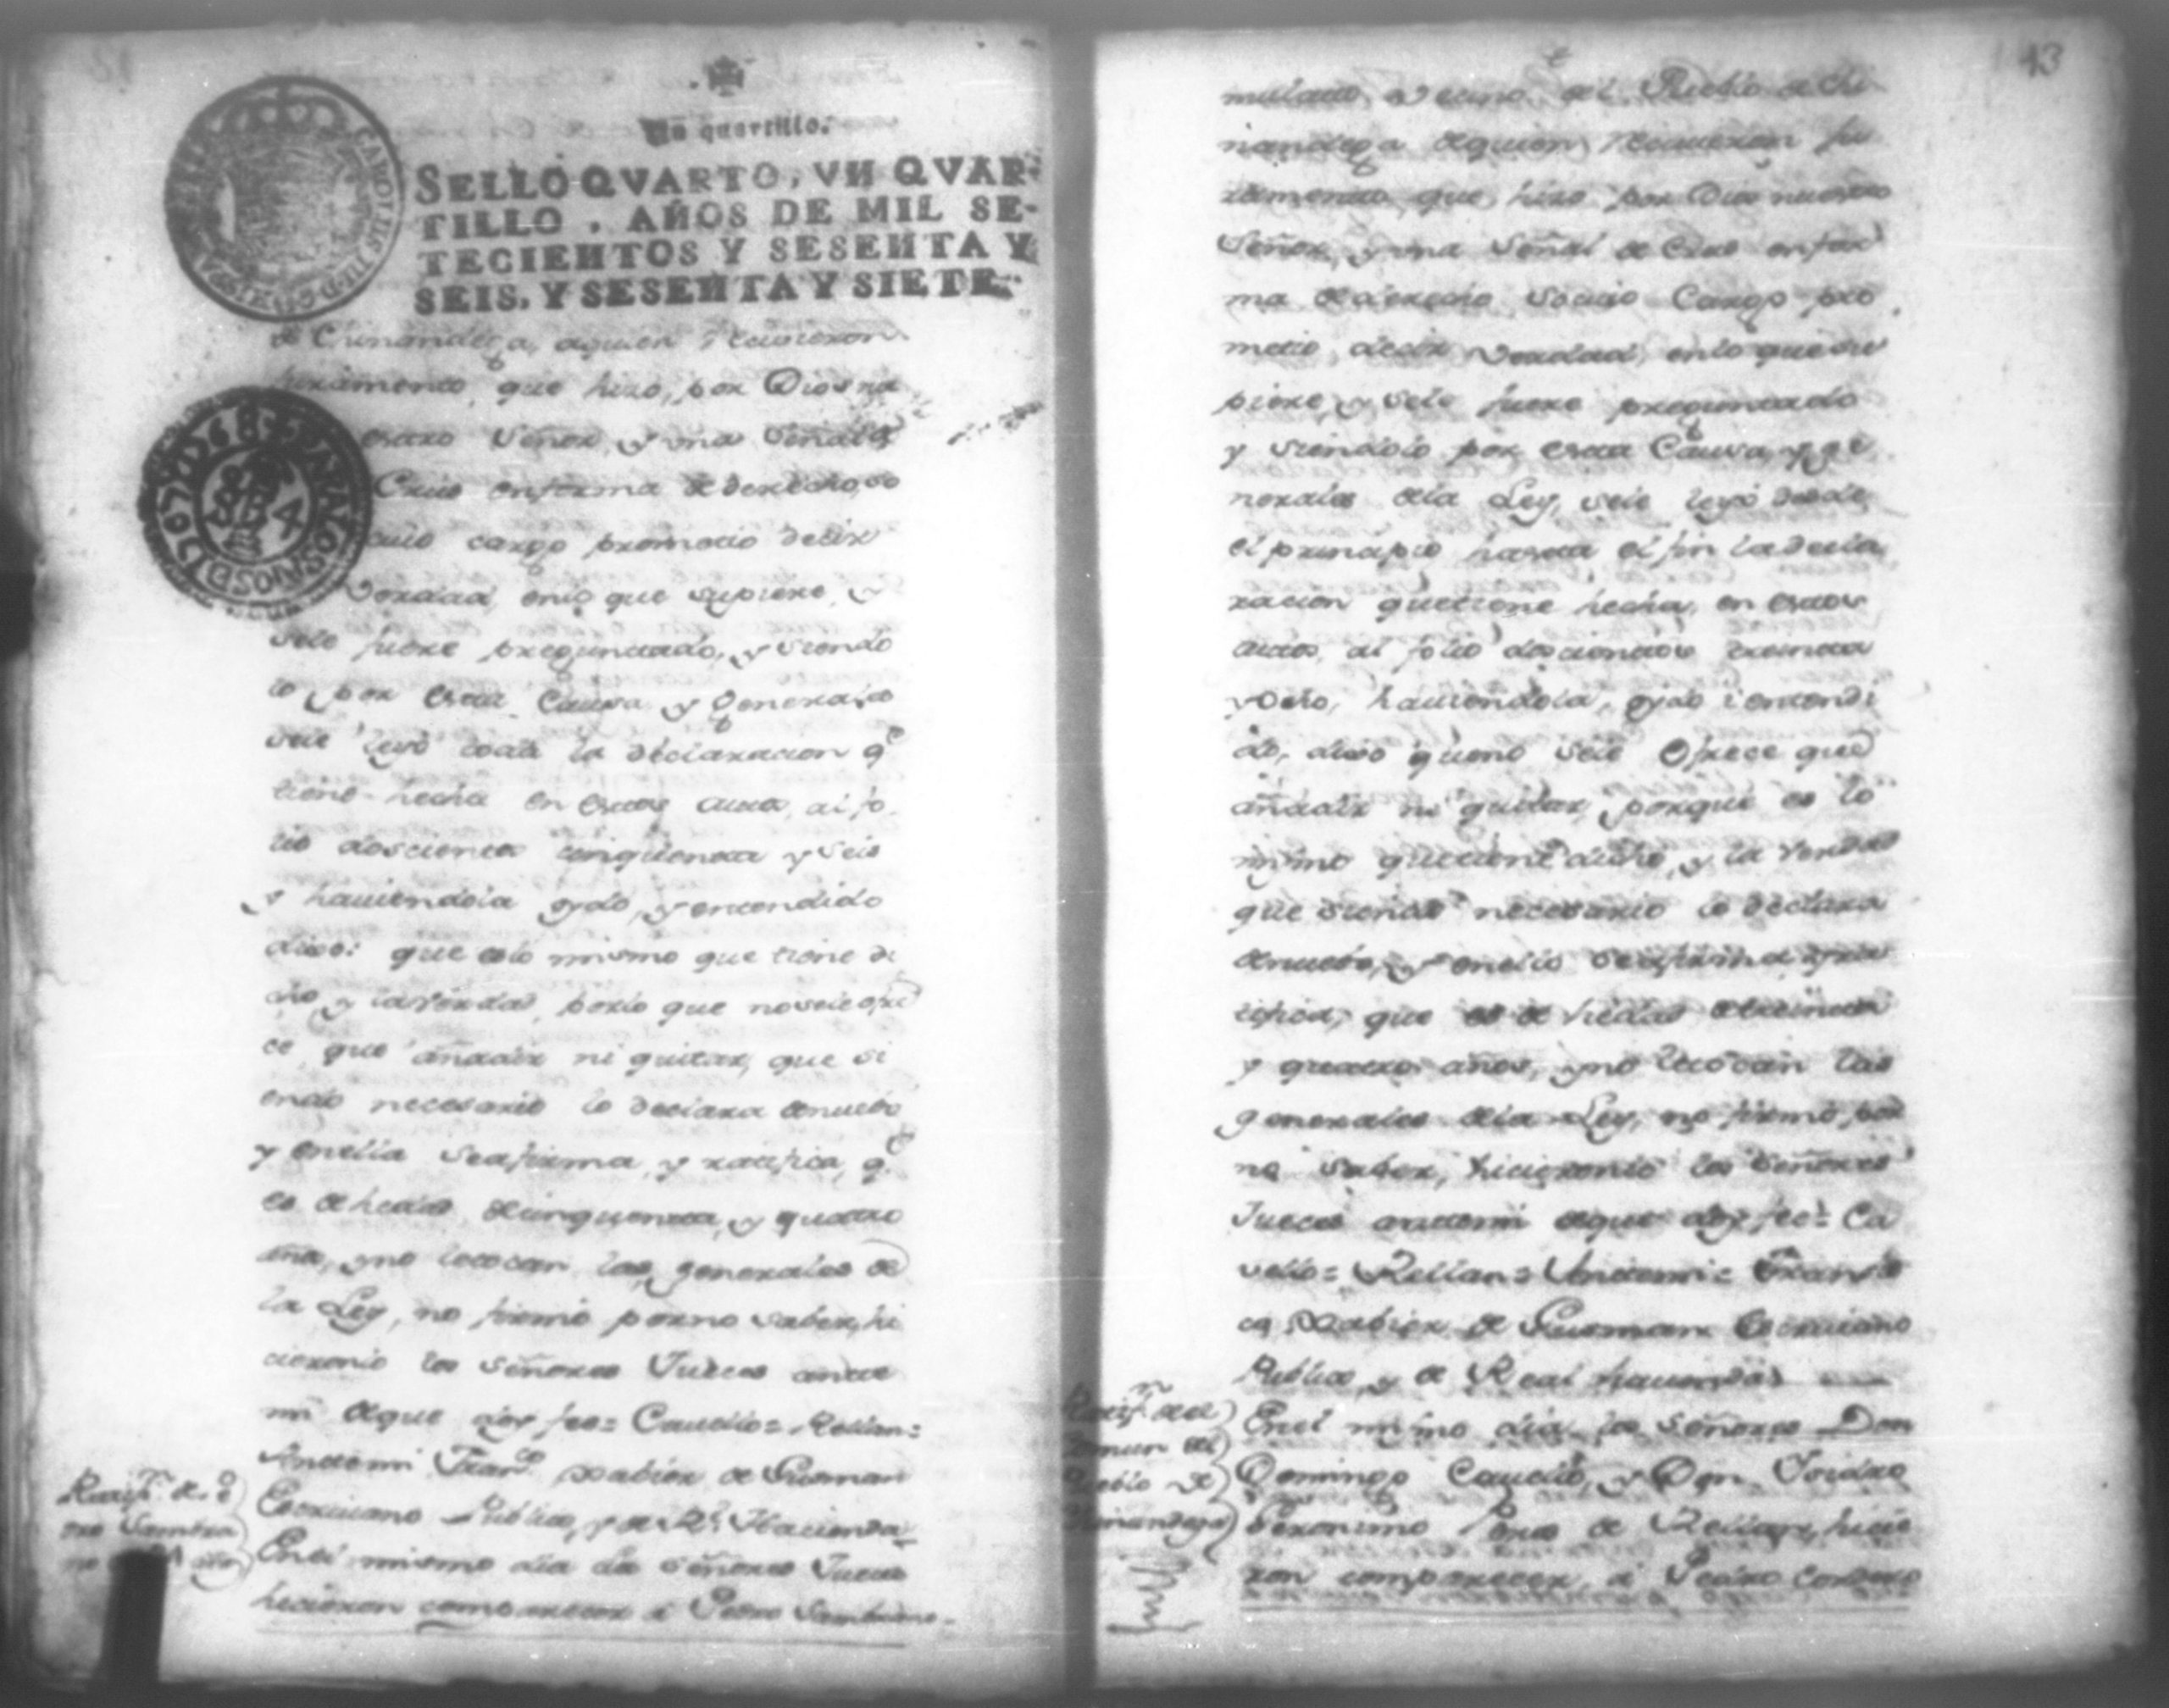 Un quartillo.
SELLO QVARTO, VN QVAR-
TILLO, AÑOS DE MIL SE-
TECIENTOS Y SESENTA Y
SEIS, Y SESENTA Y SIETE.
de Chinandega, aquien Reciuieron
juramento que hizo, por Dios nu
estro Señor, y una Señal de
Cruz enforma de derecho, so
cuio cargo prometio decir
verdad, enlo que supiere, y
sele fuere preguntado, y siendo
lo por esta Causa y generales
sele leyó toda la declaracion qe
tiene hecha en estos autos, al fo
lio doscientos cinquenta y seis
y hauiendola oydo, y entendido
dixo: que es lo mismo que tiene di
cho, y la verdad, porlo que no sele ofre
ce que añadir ni quitar, que si
endo necesario lo declara denuebo
y enella seafirma, y ratifica, qe
es de hedad decinquenta, y quatro
años, yno letocan las generales de
la Ley, no firmó porno saber, hi
cieronlo los señores Jueces ante
mi deque doy fee= Cauello= Rellan=
Antemi Franco Xabier de Gusman
Escriuano Publico, y de Rl Hacienda=
Ratifn de Pe
dro Sambra
no
Enel mismo dia los señores Jueces
hecieron comparecer á Pedro Sambrano
13
mulato, vecino del Pueblo de Chi
nandega dequien Reciuieron ju
ramento que hizo por Dios nuestro
Señor, y una Señal de Cruz enfor
ma dederecho socuio Cargo pro
metio decir verdad, enlo quesu
piere, y sele fuere preguntado
y siendolo por esta Causa, y ge
nerales dela Ley, sele leyó desde
el principio hasta el fin ladecla
racion quetiene hecha, en estos
autos, al folio doscientos treinta
y ocho, hauiendola, oydo i entendi
do, dixo queno sele Ofrece que
añadir ni quitar, porque es lo
mismo quetiene dicho, y la verdad
que siendo necesario lo declara
denuebo, y enello seafirma y ra
tifica, que es de hedad detreinta
y quatro años, yno letocan las
generales dela Ley, no firmó, por
no saber, hicieronlo los Señores
Jueces antemi deque doy fee= Ca
uello= Rellan= Antemi= Francis
co Xabier de Gusman Escriuano
Publico, y de Real hacienda
Ratifn del
Comun del
Pueblo de
Chinandega
Enel mismo dia los Señores Don
Domingo Cauello, y Don Isidro
Geronimo Peres de Rellan, hicie
ron comparecer, á Pedro Cordero